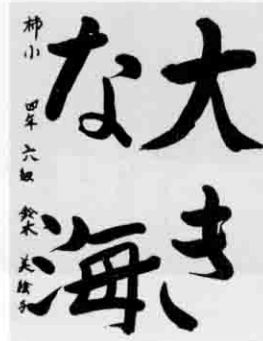 大き
な海
柿小 四年 六級 鈴木 美絵子